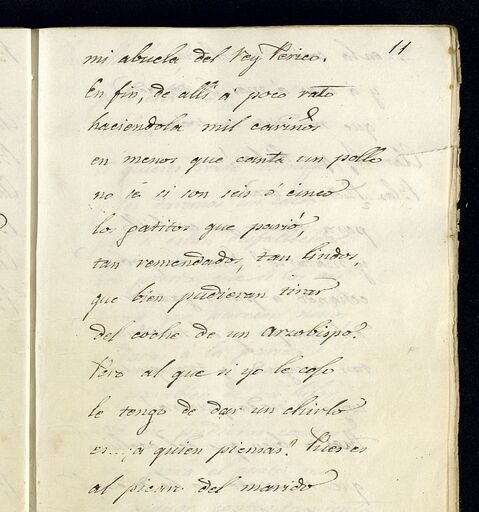 11
mi abuela del Rey Perico.
En fin, de alli á poco rato
haciendola mil cariños
en menos que canta un pollo
no sé si son seis o cinco
lo gatitos que parió,
tan remendados, tan lindos,
que bien pudieran tirar
del coche de un Arzobispo.
Pero al que si yo le cojo
le tengo de dar un chirlo
es... á quien piensas? Pues es
al picaro del marido